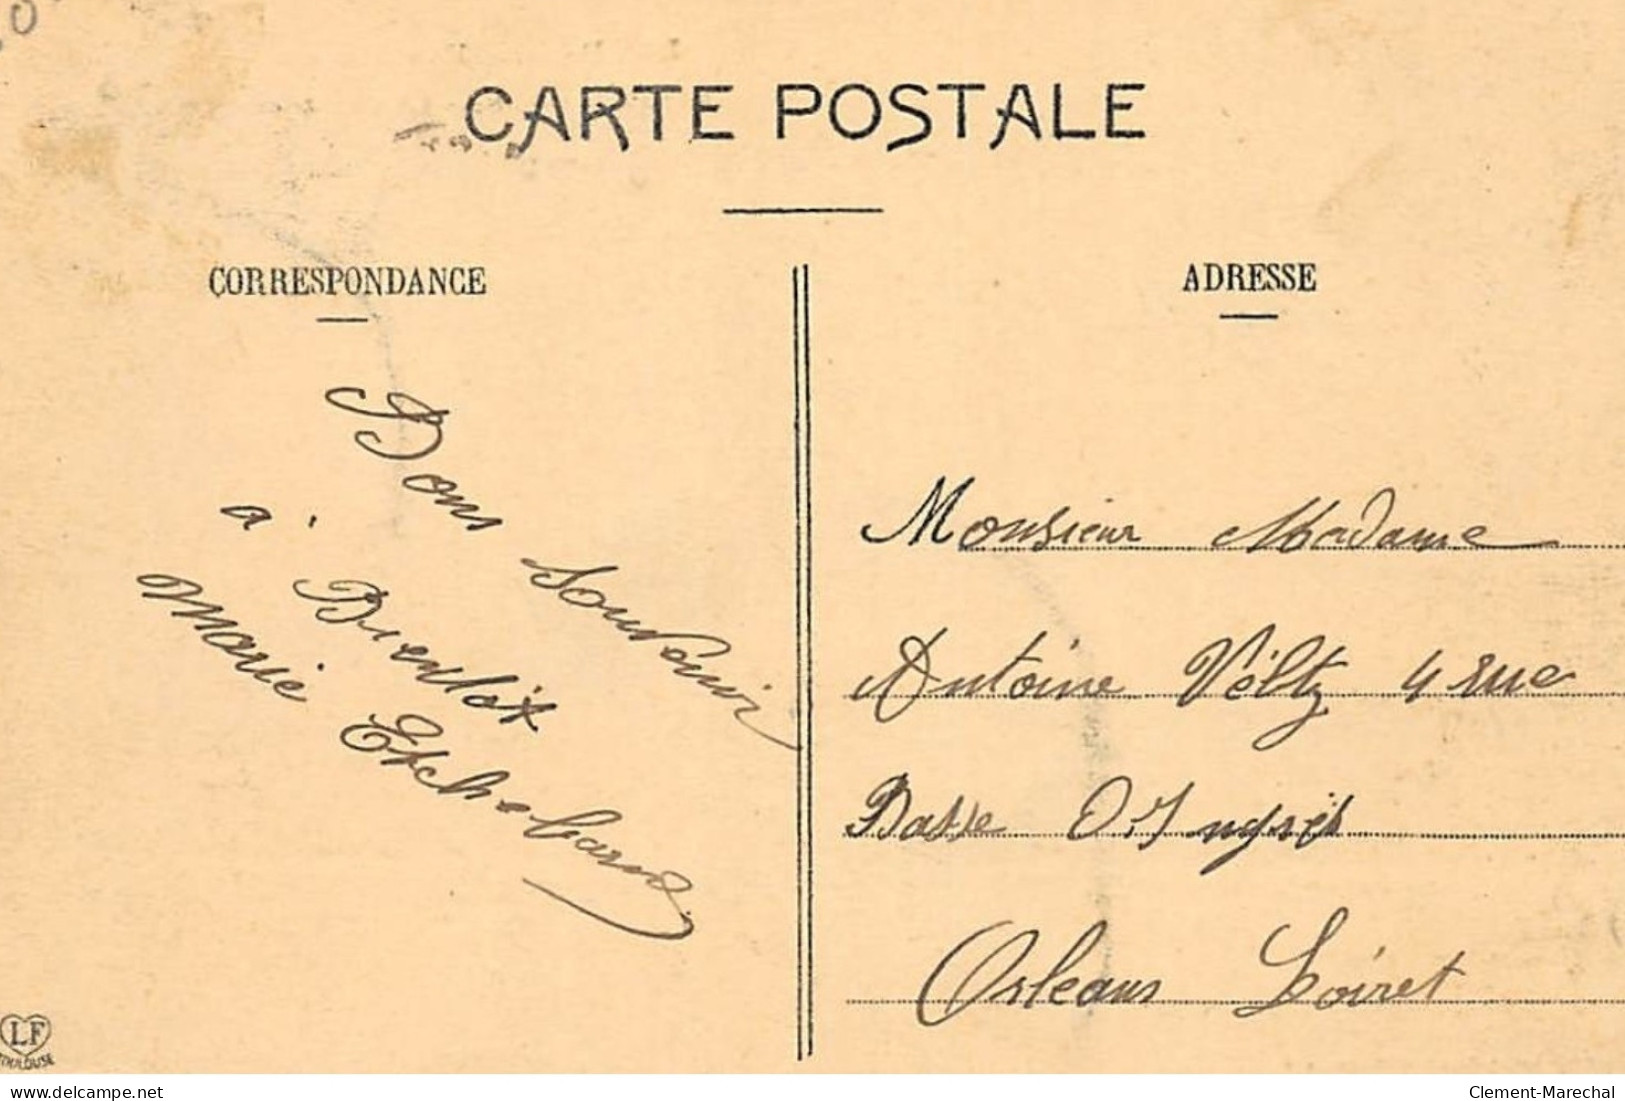 CARTE POSTALE
CORRESPONDANCE
Bons Souvenir
a' Bientôt
Marie Etchebarne
ADRESSE
Monsieur Madame
Antoine Véltz 4 rue
Basse D'Ingrés
Orleans Loiret
LF
TOULOUSE
delcampe.net
Clement-Marechal